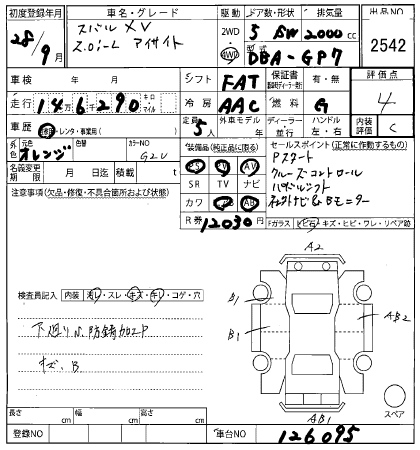 初度登録年月 車名・グレード 駆動 ドア数・形状 排気量 出品NO
28/9月 スバル XV 2WD 4WD 5 5W 2000 cc 2542
2.0i-L アイサイト 型式 DBA-GP7
車検 年 月 シフト FAT 保証書 有・無 評価点
走行 14万6千290 キロ マイル 冷房 AAC 燃料 G 4
車歴 自家・レンタ・事業用( ) 定員 5人 外車モデル 年 ディーラー 並行 ハンドル 左・右 内装評価 C
外色 元色 オレンジ 色替 カラーNO G2U 装備品(純正品に限る) セールスポイント(正常に作動するもの)
名義変更期限 月 日迄 積載 t PS PW AW Pスタート
注意事項(欠品・修復・不具合箇所および状態) SR TV ナビ クルーズコントロール
カワ パドルシフト
R券 12030円 Fガラス トビ石・キズ・ヒビ・ワレ・リペア跡
A2
検査員記入 内装 汚レ・スレ・キズ・キレ・コゲ・穴 B1
下廻り 防錆加工 B1 AB2
キズ、B
スペア
長さ cm 幅 cm 高さ cm AB1
登録NO 車台NO 126095